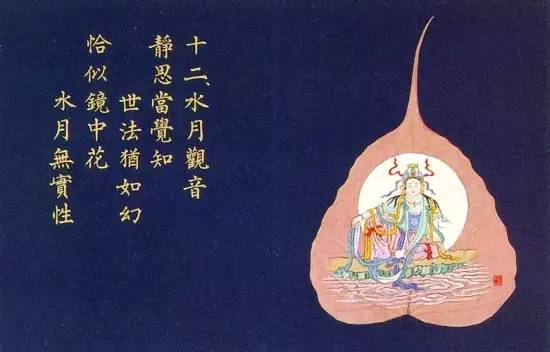 十二、水月觀音
靜思當覺知
世法猶如幻
恰似鏡中花
水月無實性